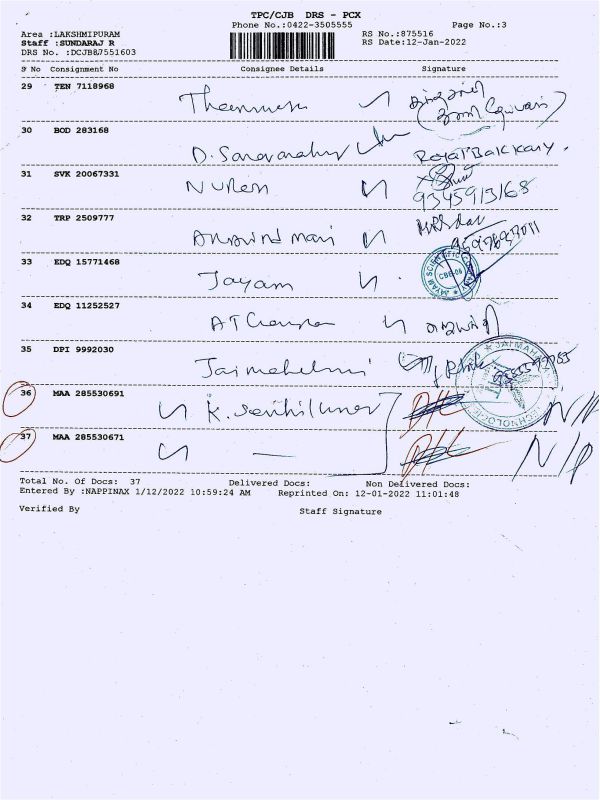 TPC/CJB DRS - PCX
Phone No.:0422-3505555 Page No.:3
Area :LAKSHMIPURAM RS No.:875516
Staff :SUNDARAJ R RS Date:12-Jan-2022
DRS No. :DCJB87551603
S No Consignment No Consignee Details Signature
29 TEN 7118968
30 BOD 283168 D. Saravanakumar
Royal Bakkary.
31 SVK 20067331 Nuresh
9345913168
32 TRP 2509777 Aravind mari
33 EDQ 15771468 Jayam
JAYAM SCIENTIFIC
CBE-
34 EDQ 11252527
35 DPI 9992030 Jaimahelmi
JAIMAHA TECHNOLOGIES
36 MAA 285530691 K. Senthilkumar D/L N/P
37 MAA 285530671 — D/L N/P
Total No. Of Docs: 37 Delivered Docs: Non Delivered Docs:
Entered By :NAPPINAX 1/12/2022 10:59:24 AM Reprinted On: 12-01-2022 11:01:48
Verified By Staff Signature